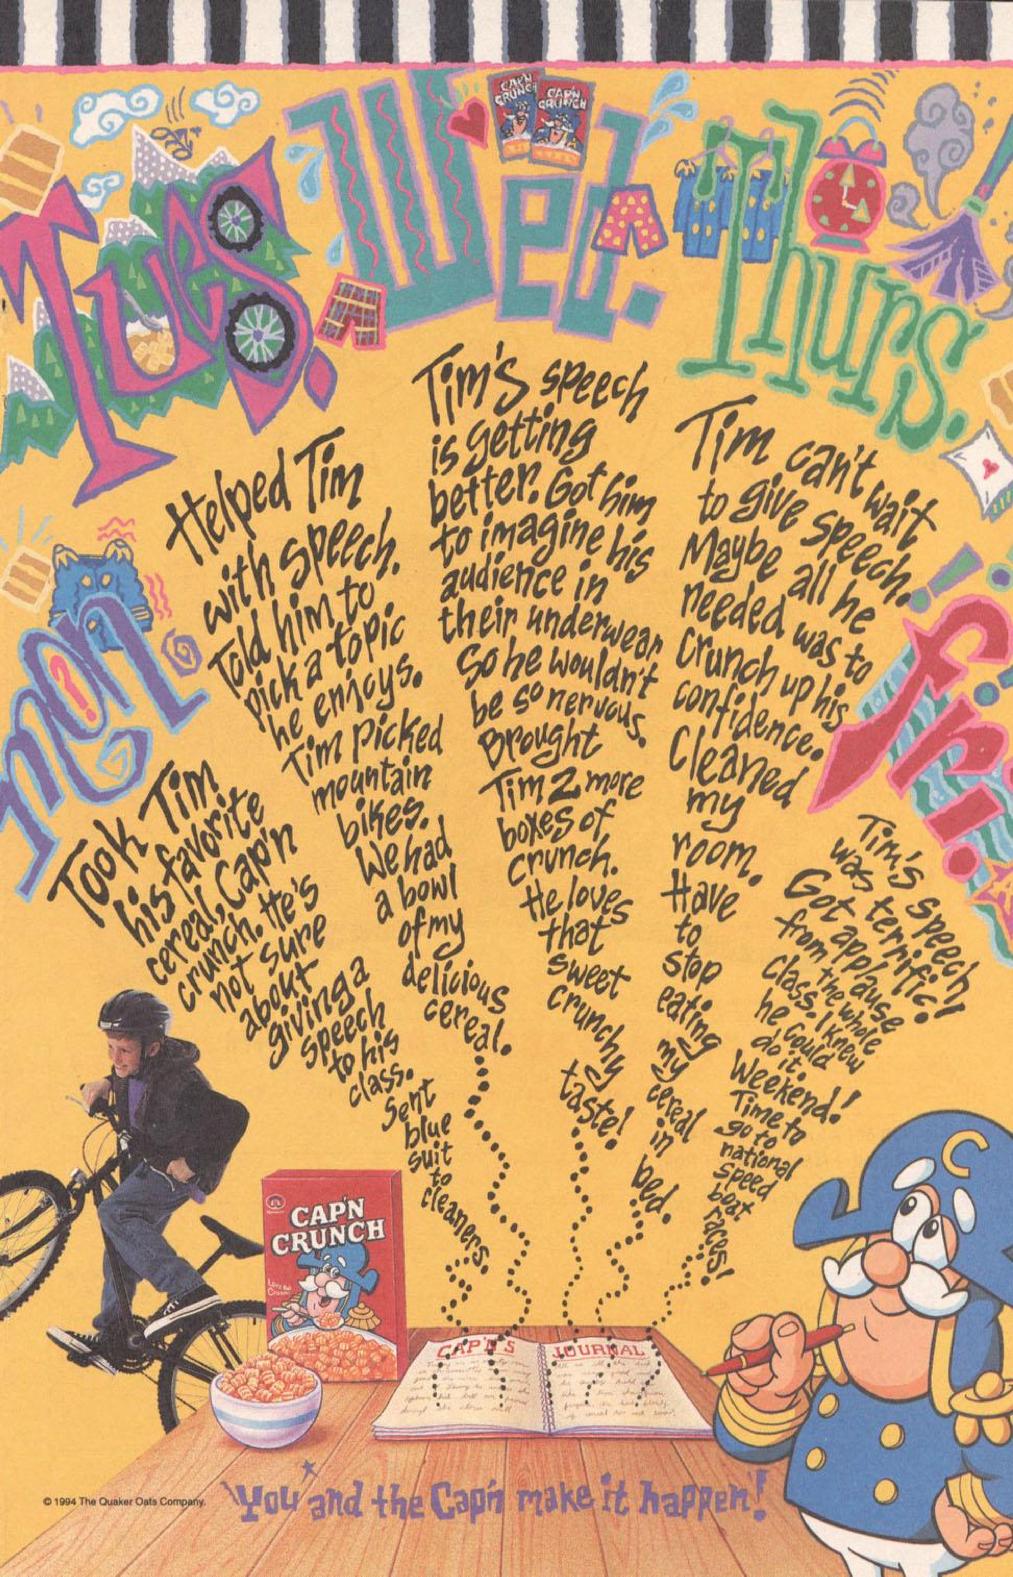 Mon.
Tues.
Wed.
Thurs.
Fri.
CAP'N
CRUNCH
CAP'N
CRUNCH
Took Tim
his favorite
cereal, Cap'n
Crunch. He's
not sure
about
giving a
speech
to his
class.
Sent
blue
suit
to
cleaners.
Helped Tim
with speech.
Told him to
pick a topic
he enjoys.
Tim picked
mountain
bikes.
We had
a bowl
of my
delicious
cereal.
Tim's speech
is getting
better. Got him
to imagine his
audience in
their underwear
so he wouldn't
be so nervous.
Brought
Tim 2 more
boxes of
Crunch.
He loves
that
sweet
crunchy
taste!
Tim can't wait
to give speech.
Maybe all he
needed was to
crunch up his
confidence.
Cleaned
my
room.
Have
to
stop
eating
my
cereal
in
bed.
Tim's speech
was terrific!
Got applause
from the whole
class. I knew
he could
do it.
Weekend!
Time to
go to
national
speed
boat
races!
CAP'N
CRUNCH
C
CAP'N'S JOURNAL
© 1994 The Quaker Oats Company.
You and the Cap'n make it happen!